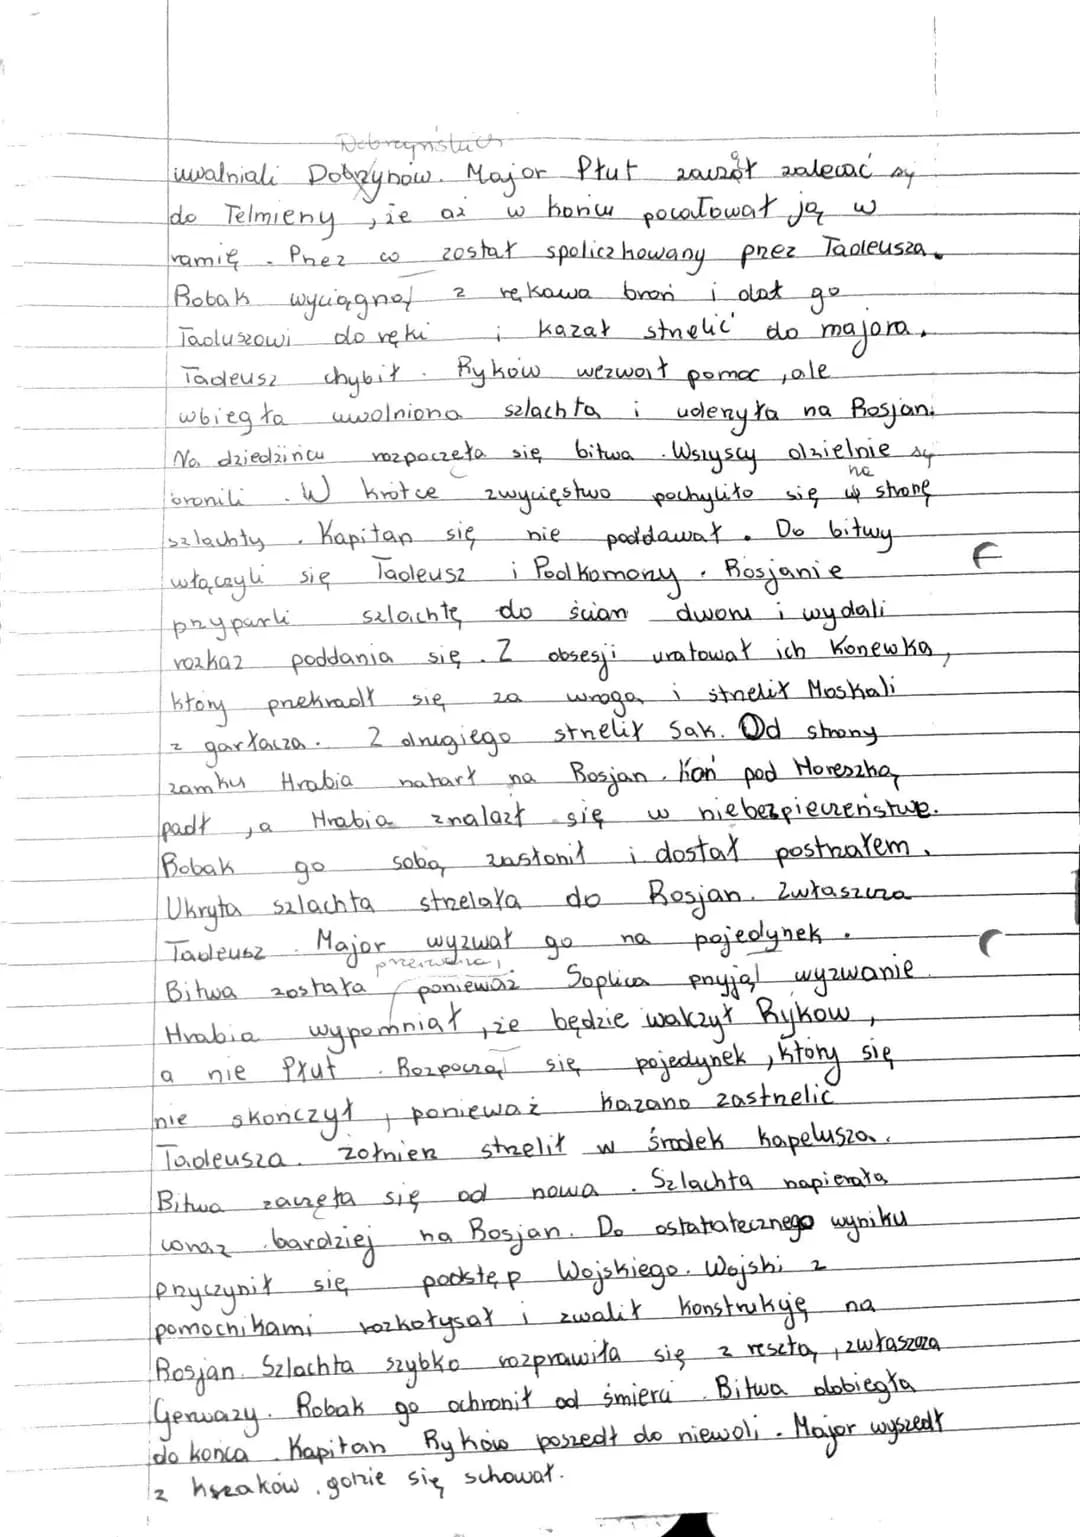 Dobrzyńskich
uwalniali Dobrzynów. Major Płut zaczął zalecać się
do Telmieny, że aż w końcu pocałował ją w
ramię. Przez co został spoliczkowany przez Tadeusza.
Robak wyciągnął z rękawa broń i dał go
Taduszowi do ręki i kazał strzelić do majora.
Tadeusz chybił. Ryków wezwał pomoc, ale
wbiegła uwolniona szlachta i uderzyła na Rosjan.
Na dziedzińcu rozpoczęła się bitwa. Wszyscy dzielnie się
na
bronili. W krótce zwycięstwo pochyliło się stronę
szlachty. Kapitan się nie poddawał. Do bitwy
włączyli się Tadeusz i Podkomorzy. Rosjanie
przyparli szlachtę do ścian dworu i wydali
rozkaz poddania się. Z obsesji uratował ich Konewka,
który przekradł się za wroga i strzelił Moskali
z garłacza. Z drugiego strzelił Sak. Od strony
zamku Hrabia natarł na Rosjan. Koń pod Horeszką
padł, a Hrabia znalazł się w niebezpieczeństwe.
Robak go sobą zasłonił i dostał postrzałem.
Ukryta szlachta strzelała do Rosjan. Zwłaszcza
Tadeusz. Major wyzwał go na pojedynek.
przerwana,
Bitwa została ponieważ Soplica przyjął wyzwanie.
Hrabia wypomniał, że będzie walczył Rykow,
a nie Płut. Rozpoczął się pojedynek, który się
nie skończył, ponieważ kazano zastrzelić
Tadeusza. Żołnierz strzelił w środek kapelusza.
Bitwa zaczęła się od nowa. Szlachta napierała
coraz bardziej na Rosjan. Do ostatratecznego wyniku
przyczynił się podstęp Wojskiego. Wojski z
pomocnikami rozkołysał i zwalił konstrukję na
Rosjan. Szlachta szybko rozprawiła się z resztą, zwłaszcza
Gerwazy. Robak go ochronił od śmierci. Bitwa dobiegła
do końca. Kapitan Ryków poszedł do niewoli. Major wyszedł
z krzaków, gdzie się schował.